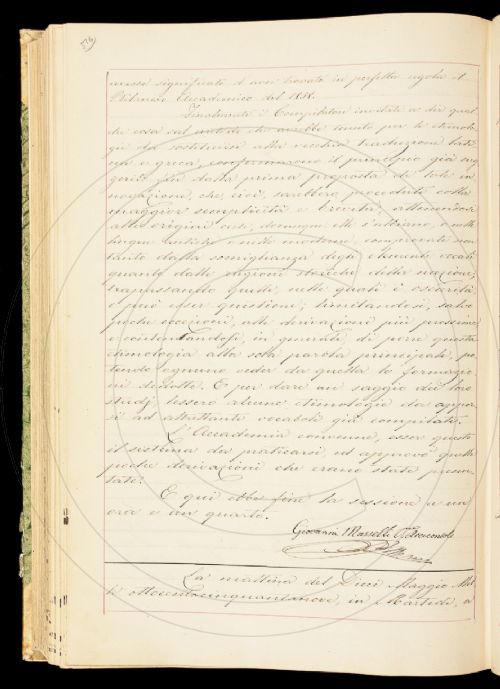 576
messo significato d'aver trovato in perfetta regola il
Bilancio Accademico del 1858.
Finalmente i Compilatori invitati a dir qual-
che cosa sul metodo che avrebbe tenuto per le etimolo-
gie da sostituirsi alla vecchia traduzione lati-
na e greca, confermarono il principio già sug-
gerito fin dalla prima proposta di tale in-
novazione, che, cioè, sarebbero procedute colla
maggior semplicità e brevità, attenendosi
alle origini certe, dovunque elle s'abbiano, o nelle
lingue antiche o nelle moderne, comprovate non
tanto dalla somiglianza degli elementi vocali
quanto dalle ragioni storiche della nazione;
trapassando quelli, nelle quali è oscurità
e può esser questione; limitandosi, salvo
poche eccezioni, alle derivazioni più prossime
e contentandosi, in generale, di porre questa
etimologia alla sola parola principale, po-
tendo ognuno veder da quella la formazio-
ne dedotta. E per dare un saggio dei loro
studj lessero alcune etimologie da appor-
si ad altrettanti vocaboli già compilati.
L'Accademia convenne, esser questo
il sistema da praticarsi, ed approvò quelle
poche derivazioni che erano state presen-
tate.
E qui ebbe fine la sessione a un'
ora e un quarto.
Giovanni Masselli V. Arciconsolo
La mattina del Dieci Maggio Mil-
le ottocentocinquantanove, in Martedì, a